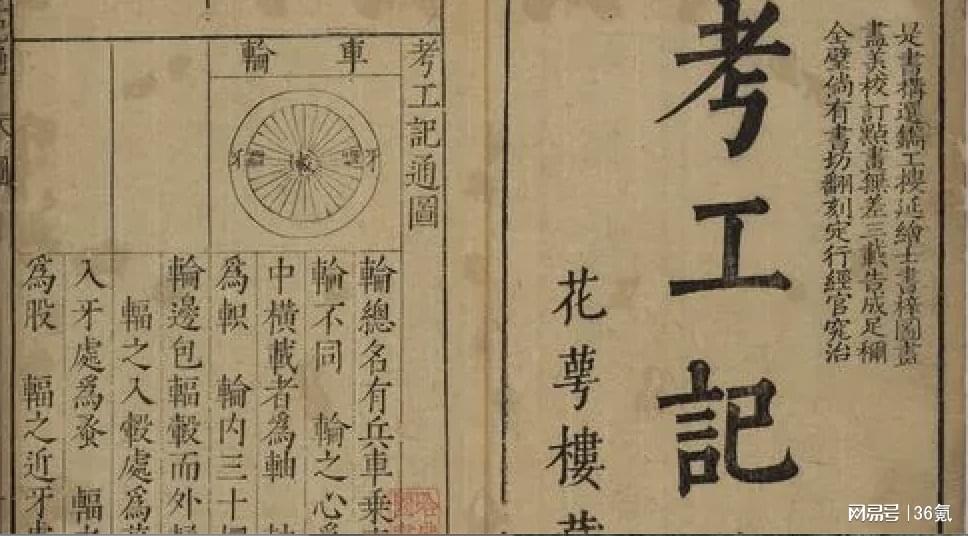 是書搆選鐫工搜延繪士書梓圖畫
盡美校訂點畫無差三載告成足稱
全璧倘有書坊翻刻定行經官究治
考工記
花萼樓
考工記通圖
車輪
牙 牙
輪總名有兵車乘
輪不同 輪之心
中橫載者為軸
為軹 輪内三十
輪邊包輻轂而外
輻之入轂處為
入牙處為蚤 輻
為股 輻之近牙
网易号 | 36氪